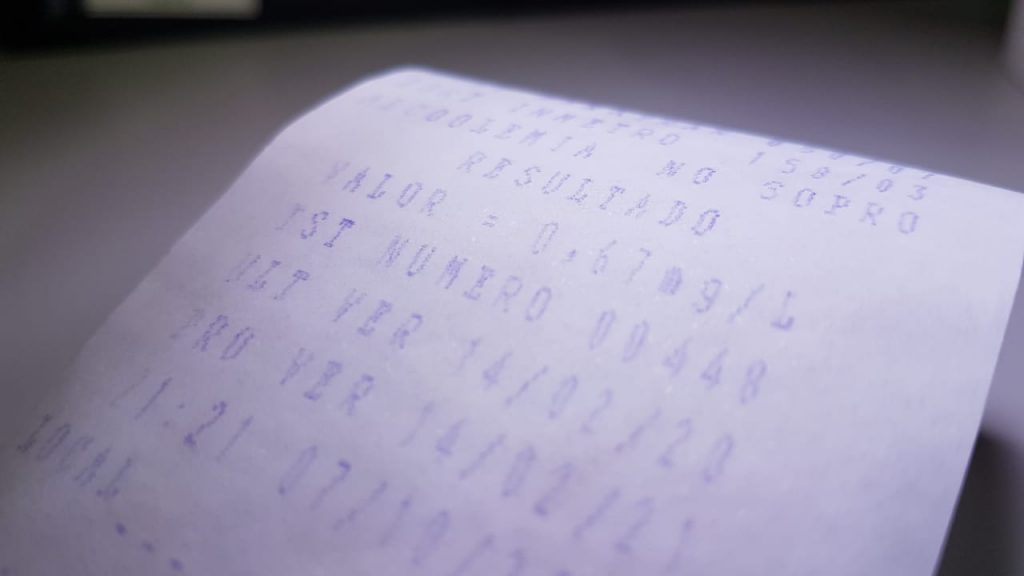 INMETRO 158/03
ALCOOLEMIA NO SOPRO
RESULTADO
VALOR = 0,67mg/L
TST NUMERO 00448
ULT VER 14/02/20
PRO VER 14/02/21
21:21 07/10/
LOCAL